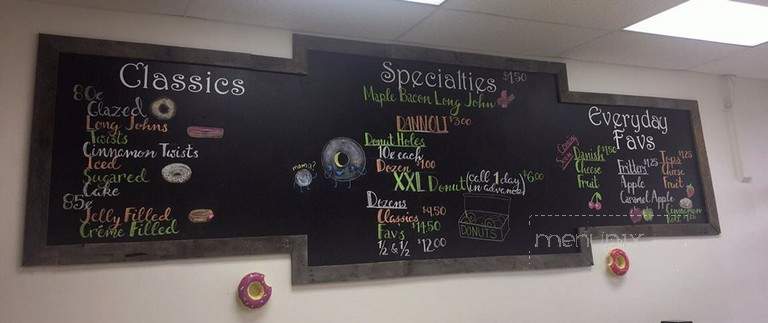 Classics
80¢
Glazed
Long Johns
Twists
Cinnamon Twists
Iced
Sugared
Cake
85¢
Jelly Filled
Créme Filled
mama?
Specialties $1.50
Maple Bacon Long John
DANNOLI $3.00
Donut Holes
10¢ each
Dozen $1.00
XXL Donut (call 1 day in advance) $6.00
Dozens
Classics $9.50
Favs $14.50
½ & ½ $12.00
DONUTS
Everyday
Favs
Coming Soon
Danish $1.50
Cheese
Fruit
Fritters $1.25
Apple
Caramel Apple
Tops $1.25
Cheese
Fruit
Cinnamon
menupix